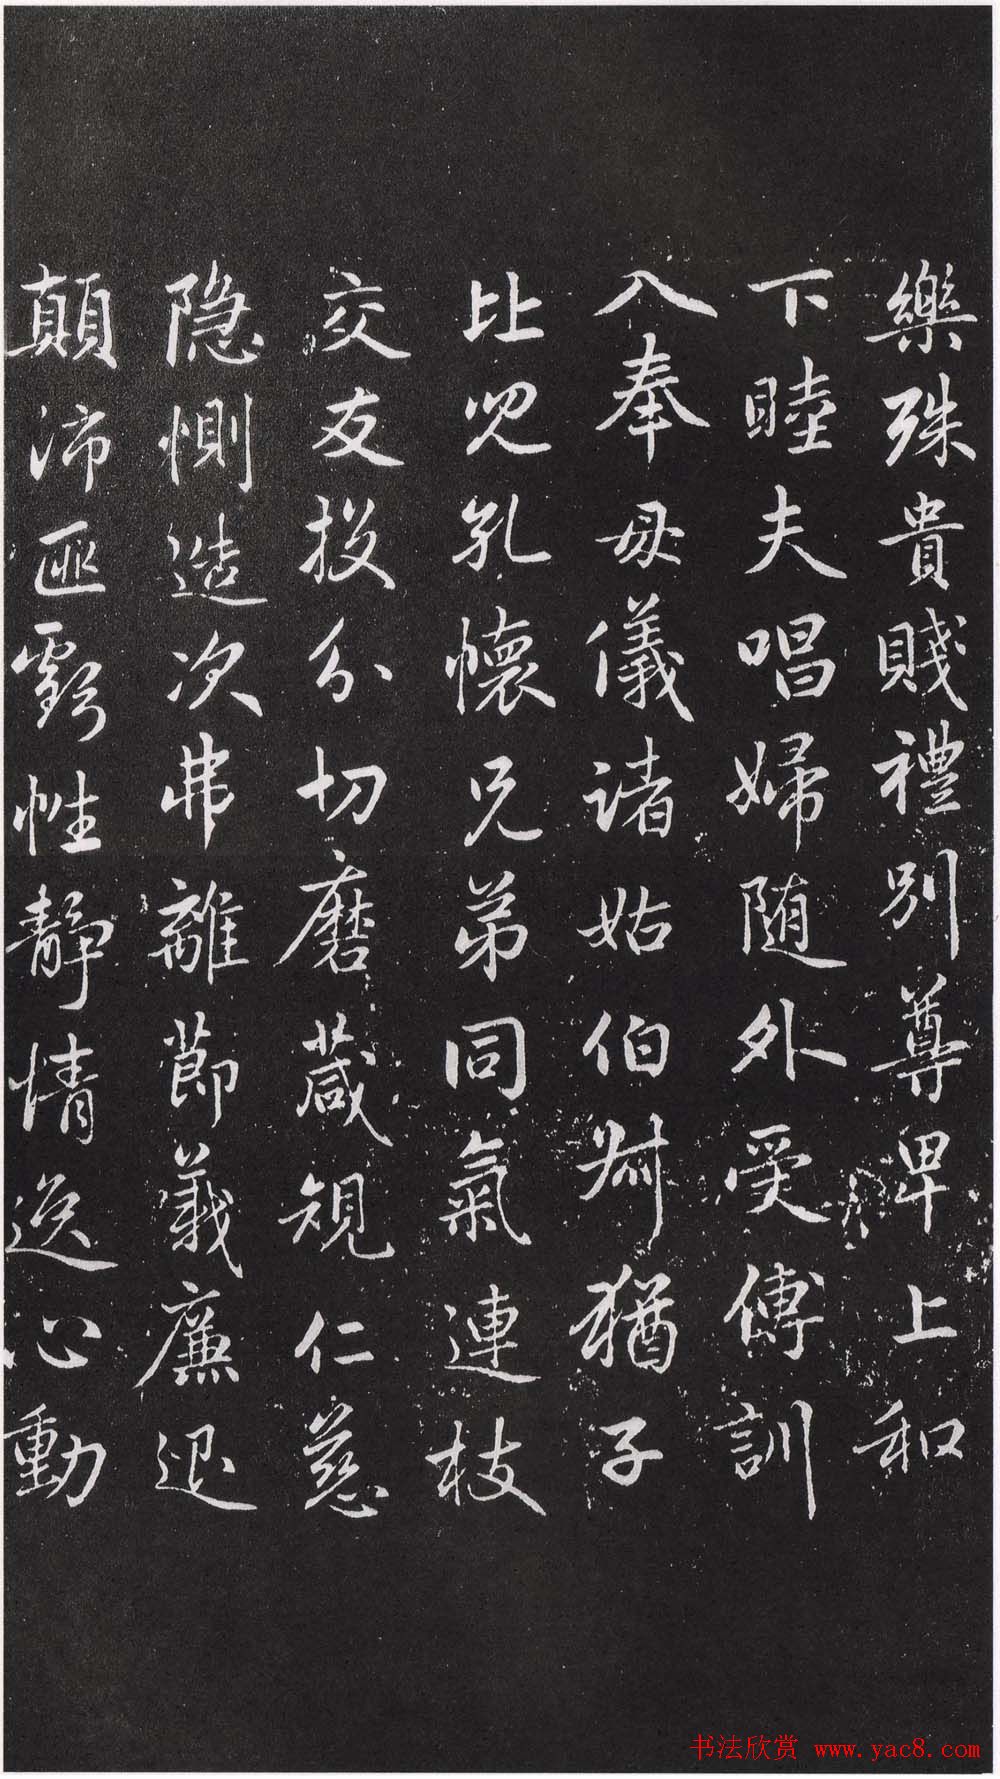 樂殊貴賤禮別尊卑上和
下睦夫唱婦随外受傅訓
入奉母儀諸姑伯叔猶子
比兒孔懷兄弟同氣連枝
交友投分切磨葴規仁慈
隐惻造次弗離節義廉退
顛沛匪虧性静情逸心動
书法欣赏 www.yac8.com